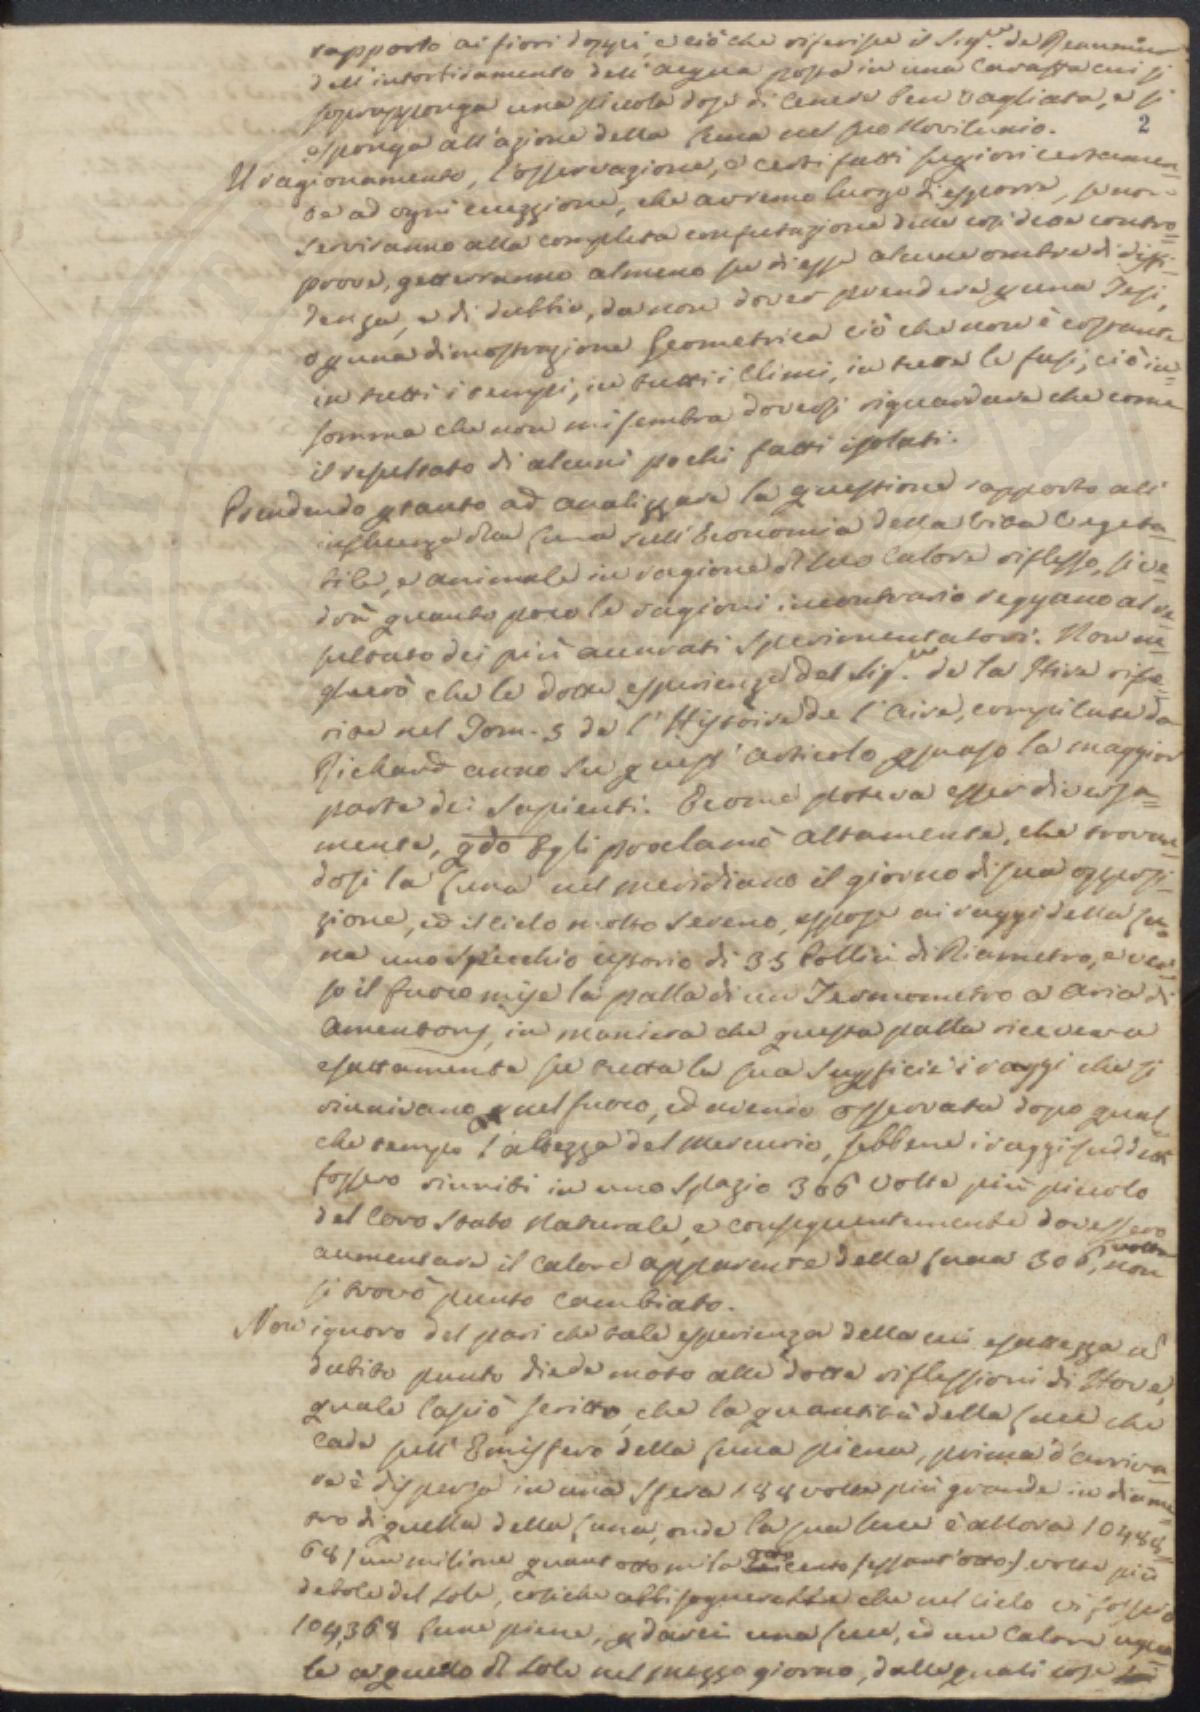 rapporto ai fiori doppj, e ciò che riferisce il Sig.r de Reaumur
dell'intorbidamento dell'acqua posta in una Caraffa cui si
soprapponga una piccola dose di Cenere ben vagliata, e si
esponga all'azione della Luna nel suo Novilunio.
2
Il ragionamento, l'osservazione, e certi fatti superiori certamen=
te ad ogni eccezzione, che avremo luogo di esporre, se non
serviranno alla completa confutazione delle così dette contro=
prove, getteranno almeno su di esse alcune ombre di diffi=
denza, e di dubbio, da non dover prendere p una Tesi,
o p una dimostrazione Geometrica ciò che non è costante
in tutti i tempi, in tutti i Climi, in tutte le fasi, ciò in=
somma che non mi sembra doversi riguardare che come
il resultato di alcuni pochi fatti isolati.
Prendendo ptanto ad analizzare la questione rapporto all'
influenza dlla Luna sull'Economia della vita Vegeta=
bile, e animale in ragione dl suo Calore riflesso, si ve=
drà quanto poco le ragioni incontrario reggano al re=
sultato dei più accurati Sperimentatori. Non ne=
gherò che le dotte esperienze del Sig.r de la Hire rife=
rite nel Tom. 5 de l'Histoire de l'Aire, compilate da
Richard anno su quest'articolo psuaso la maggior
parte dei Sapienti. E come poteva esser diversa=
mente, qdo Egli proclamò altamente, che trovan=
dosi la Luna nel meridiano il giorno di sua opposi=
zione, ed il Cielo molto sereno, espose ai raggi della Lu=
na uno Specchio ustorio di 35 Pollici di Diametro, e ver=
so il fuoco mise la palla di un Termometro a Aria di
Amentons, in maniera che questa palla riceveva
esattamente su tutta la sua Supficie i raggi che si
riunivano nel fuoco, ed avendo osservata dopo qual=
che tempo l'altezza del Mercurio, sebbene i raggi suddetti
fossero riuniti in uno Spazio 306 volte più piccolo
del loro Stato Naturale, e conseguentemente dovessero
aumentare il Calore apparente della Luna 306 volte, non
si trovò punto Cambiato.
Non ignoro del pari che tale esperienza della cui esattezza nō
dubito punto diede moto alle dotte riflessioni di Hove,
quale lasciò scritto, che la quantità della luce che
cade sull'Emisfero della Luna piena, prima d'arriva=
re è dispersa in una Sfera 188 volte più grande in diame=
tro di quella della Luna, onde la sua luce è allora 10488=
68 /un milione quarantottomila ottocento sessant'otto/ volte più
debole del Sole, cosiche abbisognerebbe che nel cielo vi fossero
104,368 Lune piene, p darci una luce, ed un Calore ugua=
le a quello dl Sole nel mezzo giorno, dalle quali cose